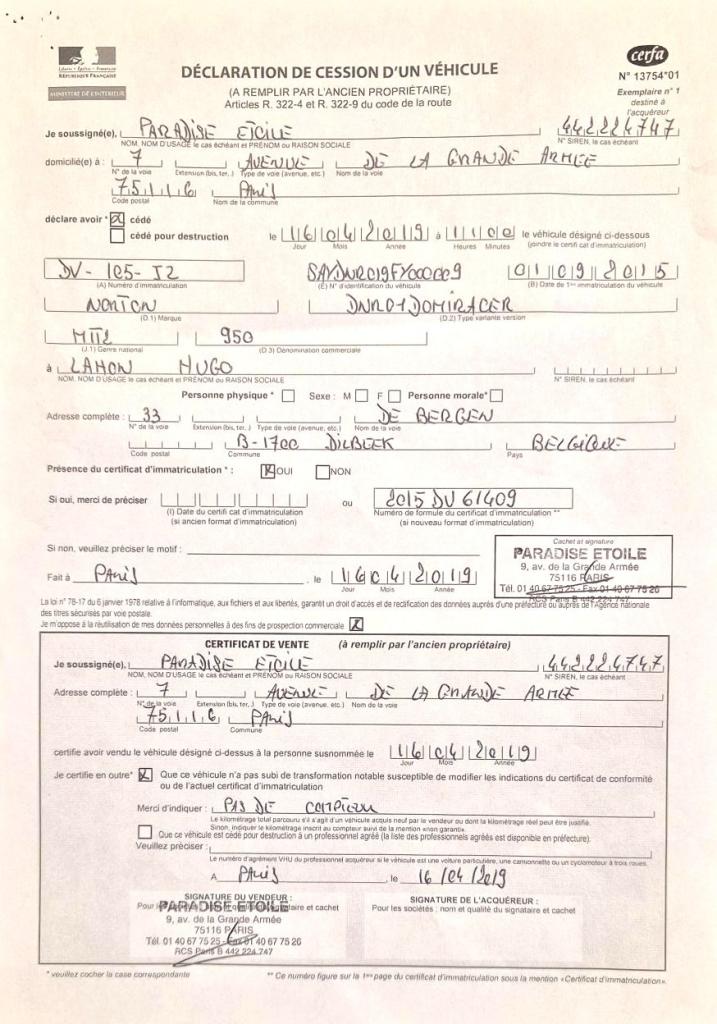 Liberté • Égalité • Fraternité
RÉPUBLIQUE FRANÇAISE
MINISTÈRE DE L'INTÉRIEUR
cerfa
N° 13754*01
DÉCLARATION DE CESSION D'UN VÉHICULE
(A REMPLIR PAR L'ANCIEN PROPRIÉTAIRE)
Articles R. 322-4 et R. 322-9 du code de la route
Exemplaire n° 1
destiné à
l'acquéreur
Je soussigné(e), PARADISE ETOILE 442224747
NOM, NOM D'USAGE le cas échéant et PRÉNOM ou RAISON SOCIALE N° SIREN, le cas échéant
domicilié(e) à : 7 AVENUE DE LA GRANDE ARMEE
N° de la voie Extension (bis, ter, ) Type de voie (avenue, etc.) Nom de la voie
75116 PARIS
Code postal Nom de la commune
déclare avoir * X cédé
cédé pour destruction le 16 04 2019 à 11 00 le véhicule désigné ci-dessous
Jour Mois Année Heures Minutes (joindre le certificat d'immatriculation)
DV-105-TZ SAYDNR019FY000009 01 09 2015
(A) Numéro d'immatriculation (E) N° d'identification du véhicule (B) Date de 1ère immatriculation du véhicule
NORTON DNR01DOMIRACER
(D.1) Marque (D.2) Type variante version
MTT2 950
(J.1) Genre national (D.3) Dénomination commerciale
à LAMON HUGO
NOM, NOM D'USAGE le cas échéant et PRÉNOM ou RAISON SOCIALE N° SIREN, le cas échéant
Personne physique * Sexe : M F Personne morale*
Adresse complète : 33 DE BERGEN
N° de la voie Extension (bis, ter, ) Type de voie (avenue, etc.) Nom de la voie
B-1700 DILBEEK BELGIQUE
Code postal Commune Pays
Présence du certificat d'immatriculation * : X OUI NON
Si oui, merci de préciser ou 2015 DV 61409
(I) Date du certificat d'immatriculation Numéro de formule du certificat d'immatriculation **
(si ancien format d'immatriculation) (si nouveau format d'immatriculation)
Si non, veuillez préciser le motif :
Cachet et signature
PARADISE ETOILE
9, av. de la Grande Armée
75116 PARIS
Tél. 01 40 67 75 25 - Fax 01 40 67 75 26
RCS Paris B 442 224 747
Fait à PARIS , le 16 04 2019
Jour Mois Année
La loi n° 78-17 du 6 janvier 1978 relative à l'informatique, aux fichiers et aux libertés, garantit un droit d'accès et de rectification des données auprès d'une préfecture ou auprès de l'Agence nationale
des titres sécurisés par voie postale.
Je m'oppose à la réutilisation de mes données personnelles à des fins de prospection commerciale X
CERTIFICAT DE VENTE (à remplir par l'ancien propriétaire)
Je soussigné(e), PARADISE ETOILE 442224747
NOM, NOM D'USAGE le cas échéant et PRÉNOM ou RAISON SOCIALE N° SIREN, le cas échéant
Adresse complète : 7 AVENUE DE LA GRANDE ARMEE
N° de la voie Extension (bis, ter, ) Type de voie (avenue, etc.) Nom de la voie
75116 PARIS
Code postal Commune
certifie avoir vendu le véhicule désigné ci-dessus à la personne susnommée le 16 04 2019
Jour Mois Année
Je certifie en outre* X Que ce véhicule n'a pas subi de transformation notable susceptible de modifier les indications du certificat de conformité
ou de l'actuel certificat d'immatriculation
Merci d'indiquer : PAS DE COMPTEUR
Le kilométrage total parcouru s'il s'agit d'un véhicule acquis neuf par le vendeur ou dont le kilométrage réel peut être justifié.
Sinon, indiquer le kilométrage inscrit au compteur suivi de la mention «non garanti».
Que ce véhicule est cédé pour destruction à un professionnel agréé (la liste des professionnels agréés est disponible en préfecture).
Veuillez préciser :
Le numéro d'agrément VHU du professionnel acquéreur si le véhicule est une voiture particulière, une camionnette ou un cyclomoteur à trois roues.
A PARIS , le 16/04/2019
SIGNATURE DU VENDEUR : SIGNATURE DE L'ACQUÉREUR :
Pour les sociétés : nom et qualité du signataire et cachet
PARADISE ETOILE
9, av. de la Grande Armée
75116 PARIS
Tél. 01 40 67 75 25 - Fax 01 40 67 75 26
RCS Paris B 442 224 747
* veuillez cocher la case correspondante ** Ce numéro figure sur la 1ère page du certificat d'immatriculation sous la mention «Certificat d'immatriculation».